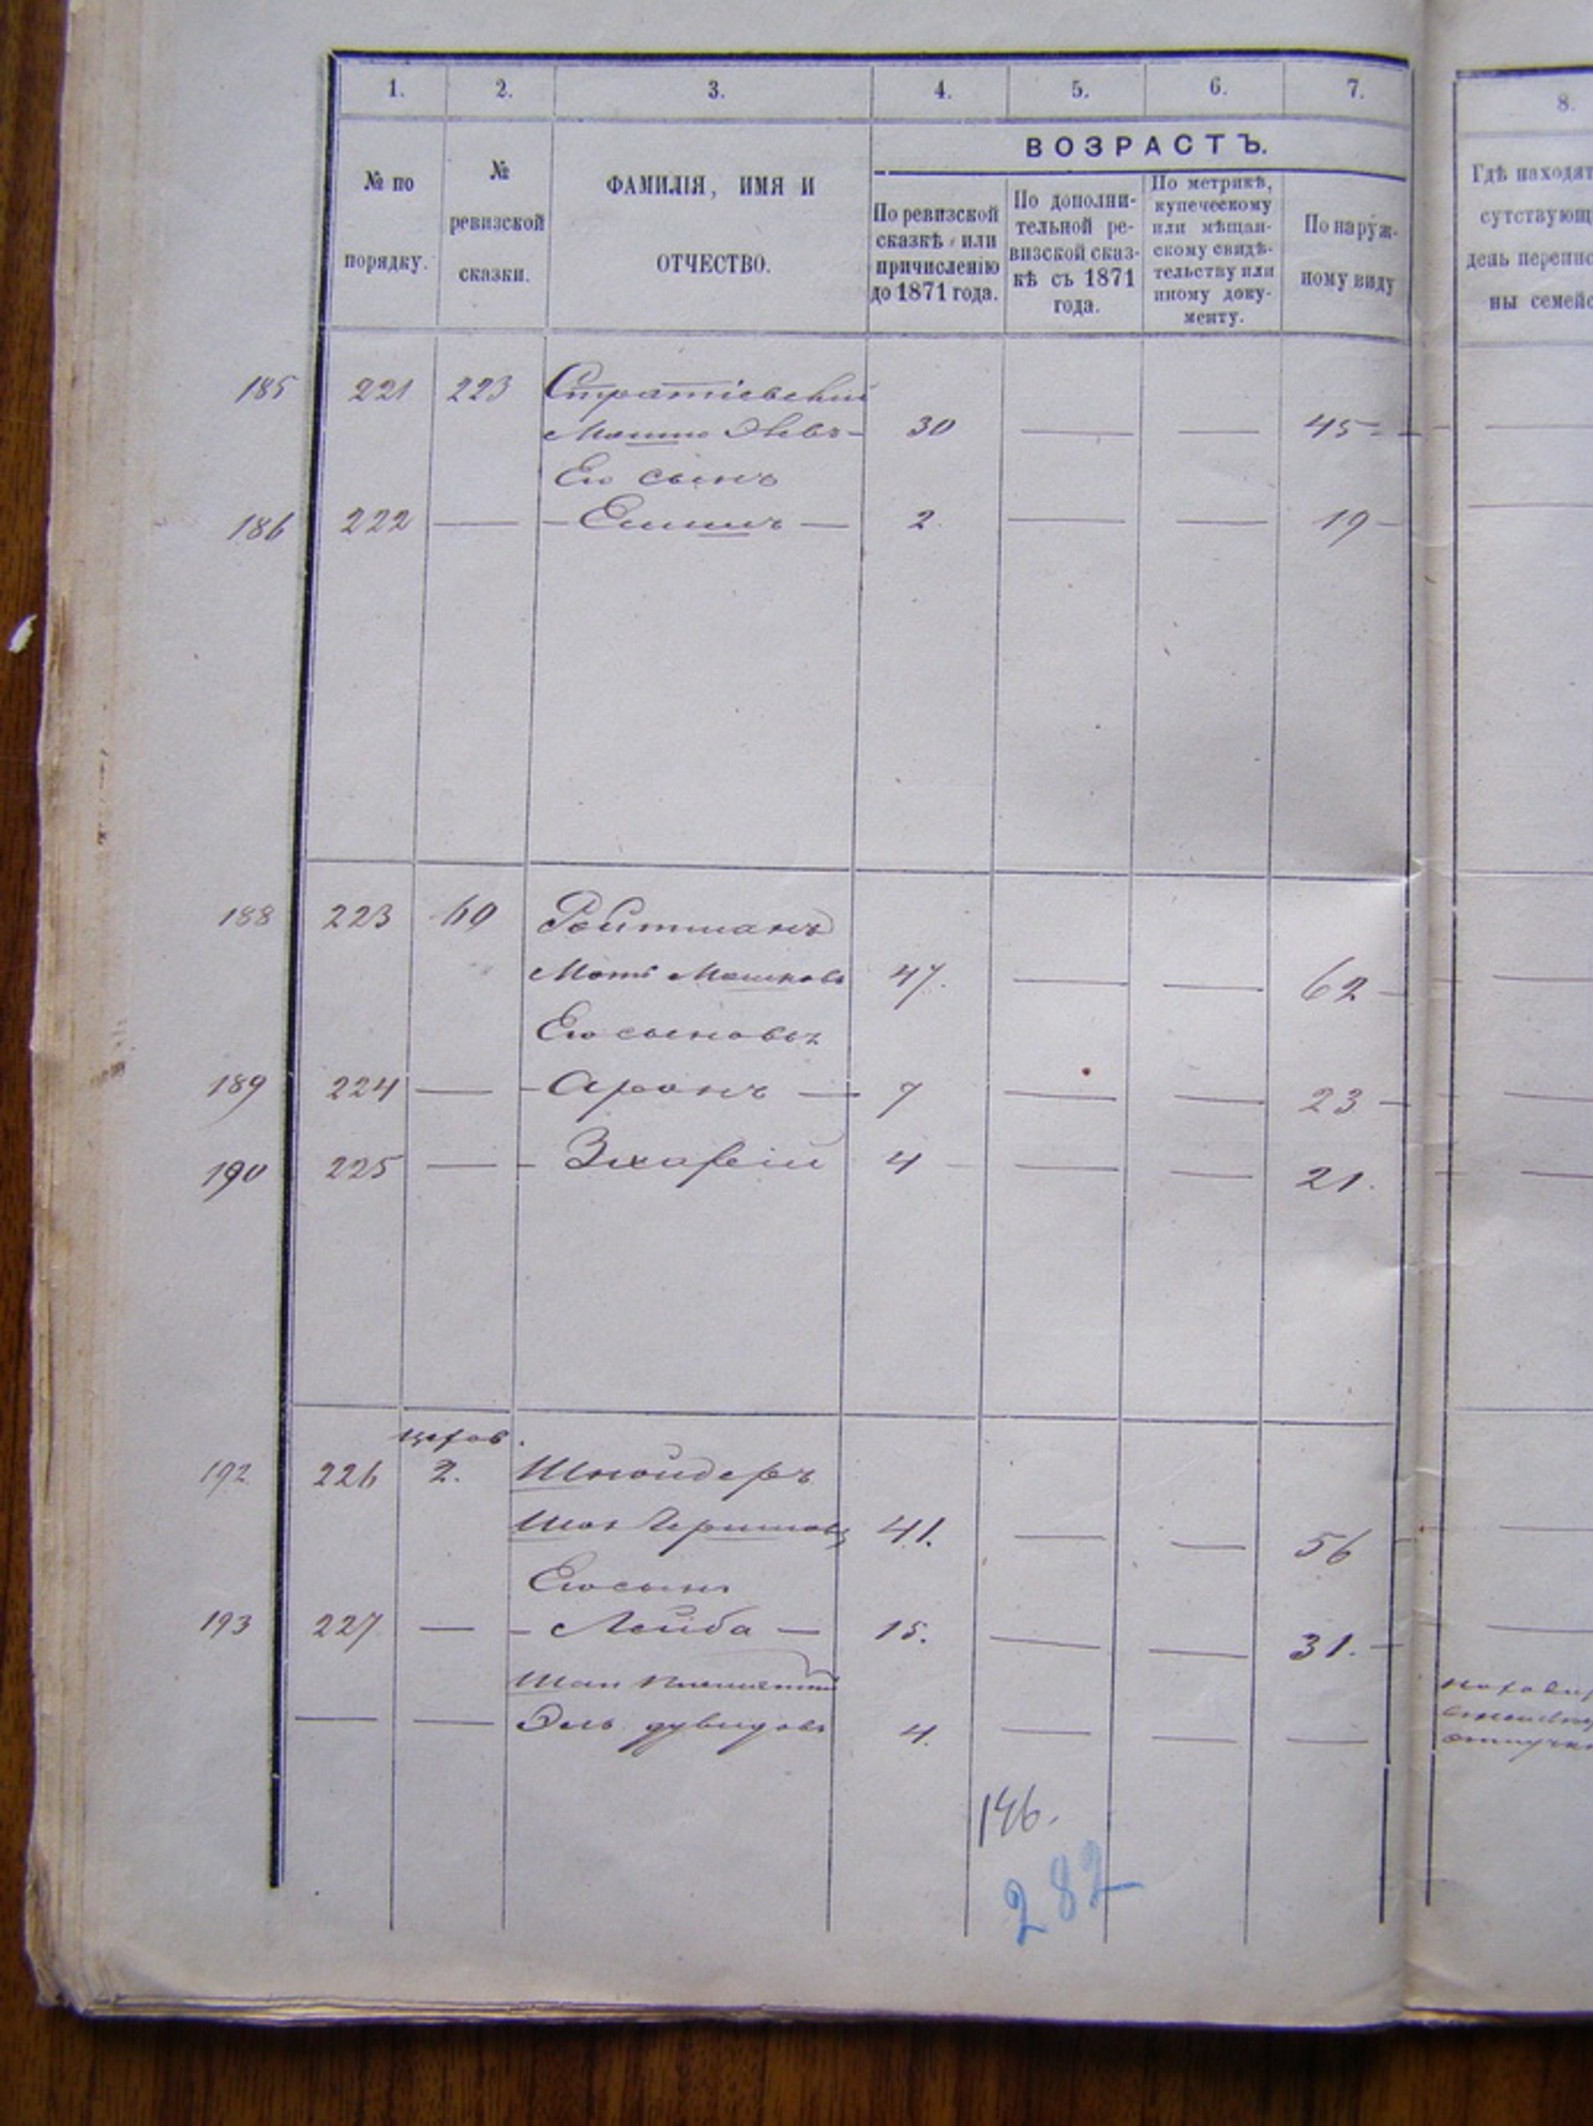 1. 2. 3. 4. 5. 6. 7. 8.
ВОЗРАСТЪ.
№ по порядку.
№ ревизской сказки.
ФАМИЛІЯ, ИМЯ И ОТЧЕСТВО.
По ревизской сказкѣ или причисленію до 1871 года.
По дополнительной ревизской сказкѣ съ 1871 года.
По метрикѣ, купеческому или мѣщанскому свидѣтельству или иному документу.
По наружному виду
Гдѣ находят
сутствующ
день перепис
ны семейс
185 221 223 Стратіевскій
30 — — 45
Его сынъ
186 222 — — — 2 — — 19
188 223 60 Ройтманъ
Мошковъ 47. — — 62
Его сыновья
189 224 — Аронъ — 7 — — 23
190 225 — 4 — — 21.
цехов.
192 226 2. Шнойдеръ
Гершковъ 41. — — 56
Его сынъ
193 227 — Лейба — 15. — — 31.
— — 4. — — —
146.
282